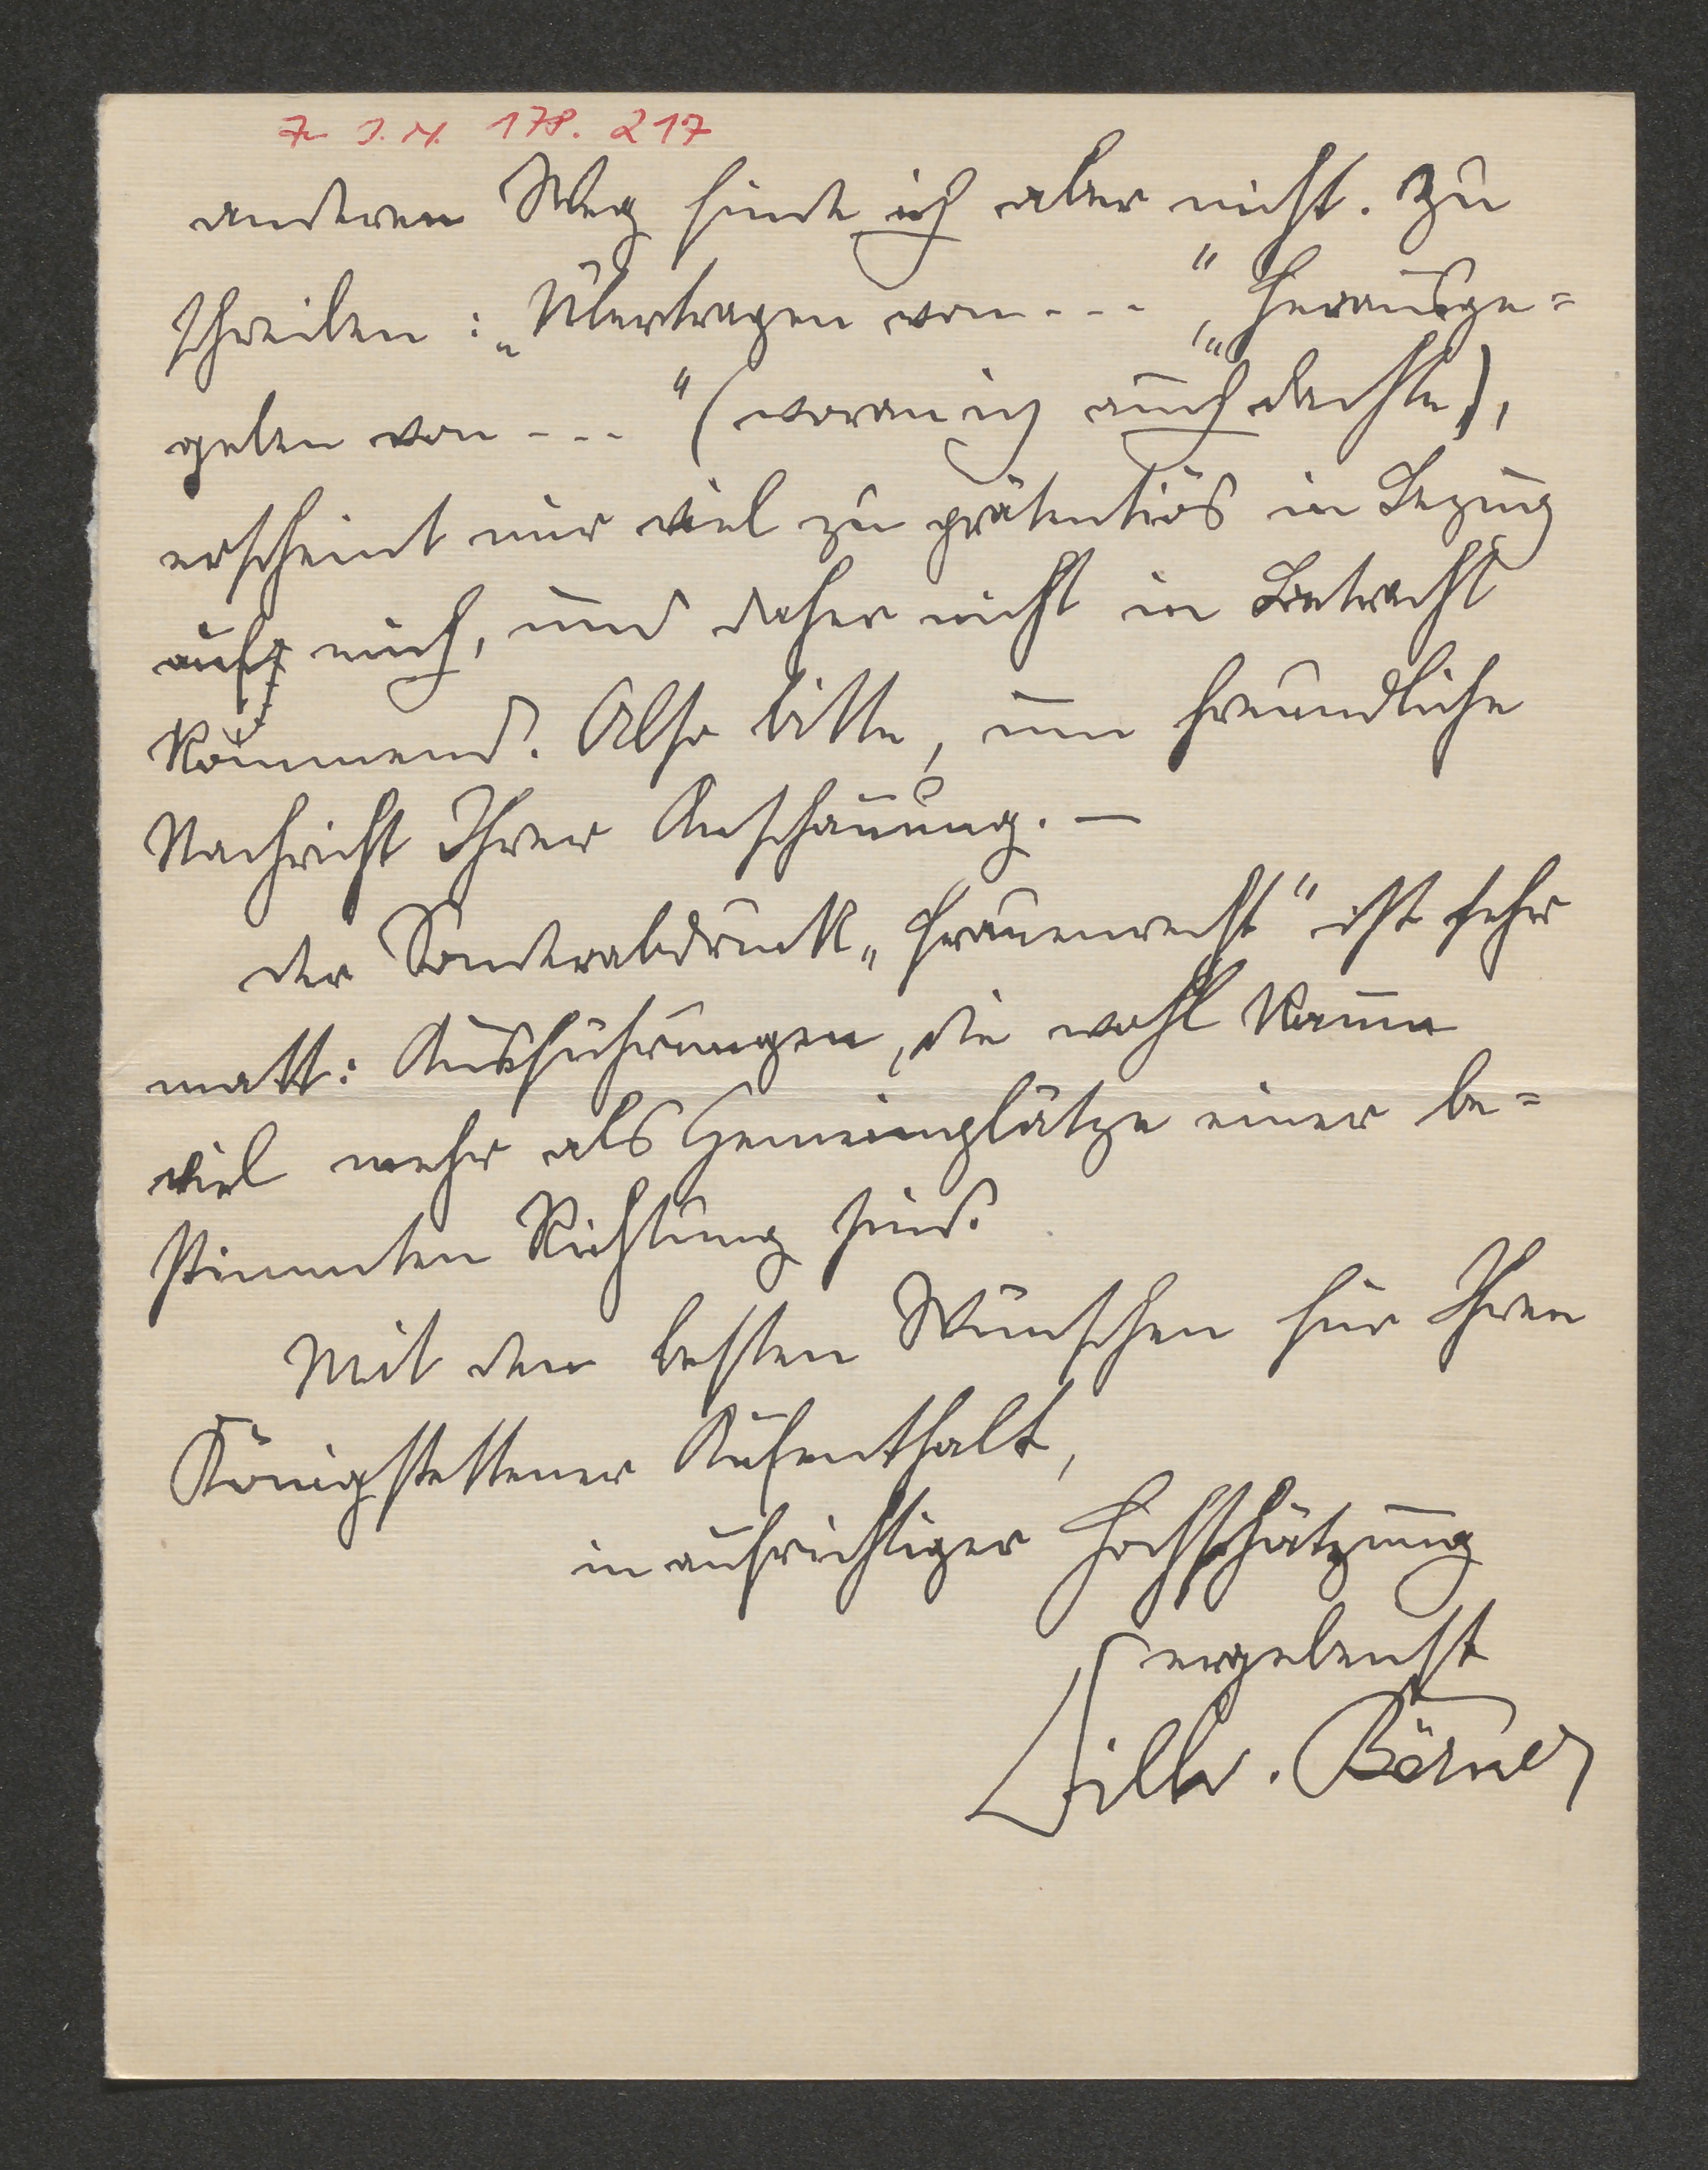 Zu I.N. 178.217
anderen Weg finde ich aber nicht. Zu
schreiben: „Übertragen von ---", „Herausge=
geben von ---" (woran ich auch dachte),
erscheint mir viel zu prätentiös in Bezug
auf mich, und daher nicht in Betracht
kommend. Also bitte, um freundliche
Nachricht Ihrer Anschauung. —
Der Sonderabdruck „Frauenrecht" ist sehr
matt: Ausführungen, die wohl kaum
viel mehr als Gemeinplätze einer be=
stimmten Richtung sind.
Mit den besten Wünschen für Ihren
Königstettener Aufenthalt,
in aufrichtiger Hochschätzung
ergebenst
Wilh. Börner